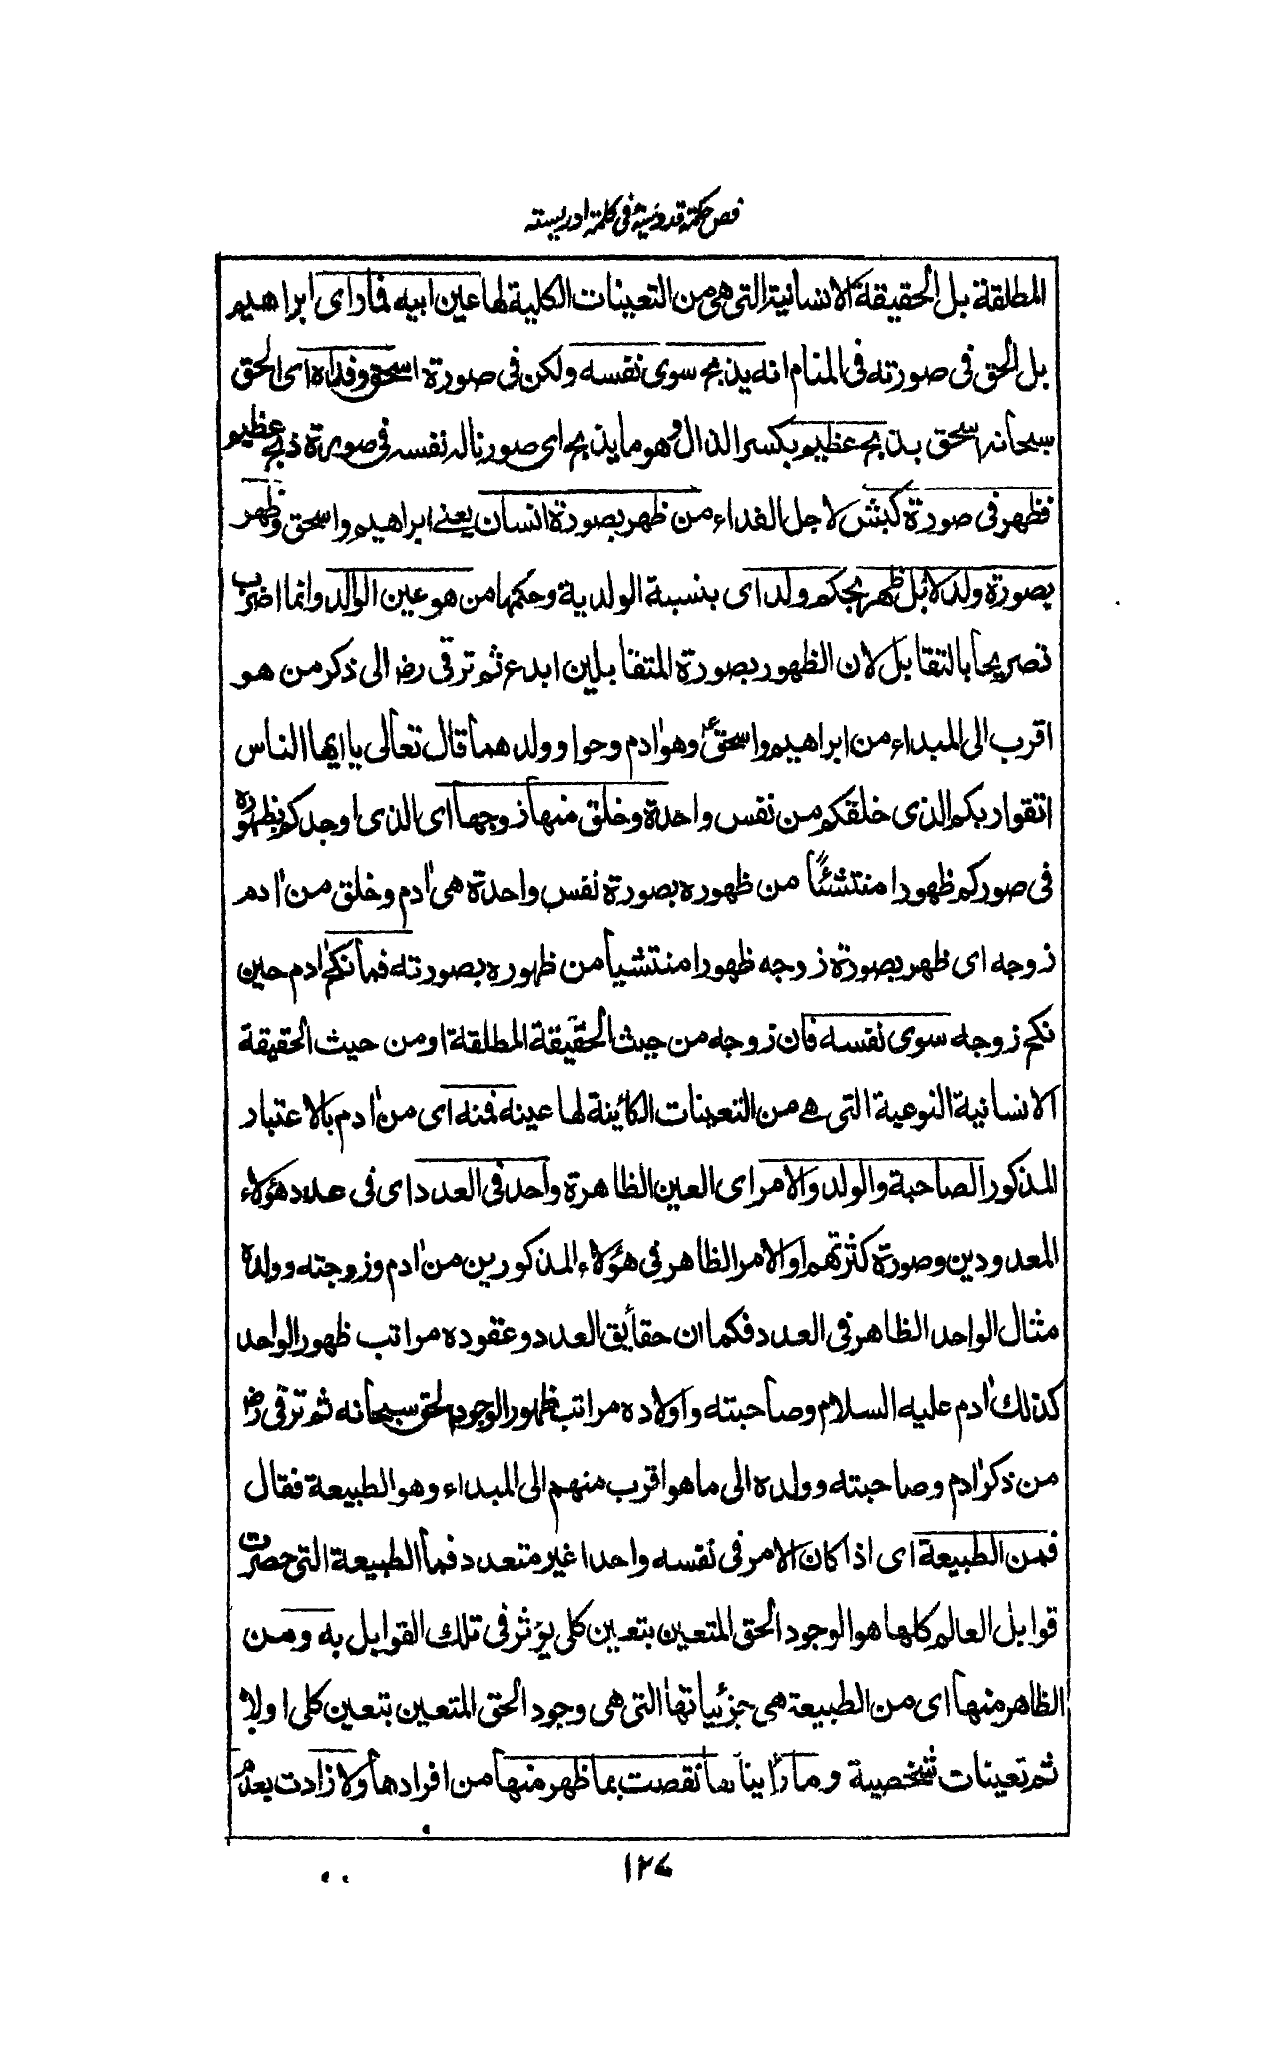 فص حكمة قدوسية في كلمة ادريسية
المطلقة بل الحقيقة الانسانية التى هى من التعينات الكلية لها عين ابيه فما راى اى ابراهيم
بل الحق فى صورته فى المنام انه يذبح سوى نفسه ولكن فى صورة اسحق وفداه اى الحق
سبحانه اسحق بذبح عظيم بكسر الذال وهو ما يذبح اى صورنا له نفسه فى صورة ذبح عظيم
فظهر فى صورة كبش لاجل الفداء من ظهر بصورة انسان يعنے ابراهيم واسحق وظهر
بصورة ولد لا بل ظهر بحكم ولد اى بنسبة الولدية وحكمها من هو عين الوالد وانما اضرب
تصريحا بالتقابل لان الظهور بصورة المتقابلين ابدع ثم ترقى رض الى ذكر من هو
اقرب الى المبداء من ابراهيم واسحق ع وهو ادم وحوا وولدهما قال تعالى يا ايها الناس
اتقوا ربكم الذى خلقكم من نفس واحدة وخلق منها زوجها اى الذى اوجدكم بظهوره
فى صوركم ظهورا منتشئا من ظهوره بصورة نفس واحدة هى ادم وخلق من ادم
زوجه اى ظهر بصورة زوجه ظهورا منتشيا من ظهوره بصورته فما نكح ادم حين
نكح زوجه سوى نفسه فان زوجه من حيث الحقيقة المطلقة او من حيث الحقيقة
الانسانية النوعية التى هے من التعينات الكائنة لها عينه فمنه اى من ادم بالاعتبار
المذكور الصاحبة والولد والامر اى العين الظاهرة واحد فى العدد اى فى عدد هؤلاء
المعدودين وصورة كثرتهم او الامر الظاهر فى هؤلاء المذكورين من ادم وزوجته وولده
مثال الواحد الظاهر فى العدد فكما ان حقايق العدد وعقوده مراتب ظهور الواحد
كذلك ادم عليه السلام وصاحبته واولاده مراتب ظهور الوجود الحق سبحانه ثم ترقى رض
من ذكر ادم وصاحبته وولده الى ما هو اقرب منهم الى المبداء وهو الطبيعة فقال
فمن الطبيعة اى اذا كان الامر فى نفسه واحدا غير متعدد فما الطبيعة التى حصرت
قوابل العالم كلها هو الوجود الحق المتعين بتعين كلى يؤثر فى تلك القوابل به ومن
الظاهر منها اى من الطبيعة هى جزئياتها التى هى وجود الحق المتعين بتعين كلى اولا
ثم تعينات شخصية وما رايناها نقصت بما ظهر منها من افرادها ولا زادت بعدم
١٢٧